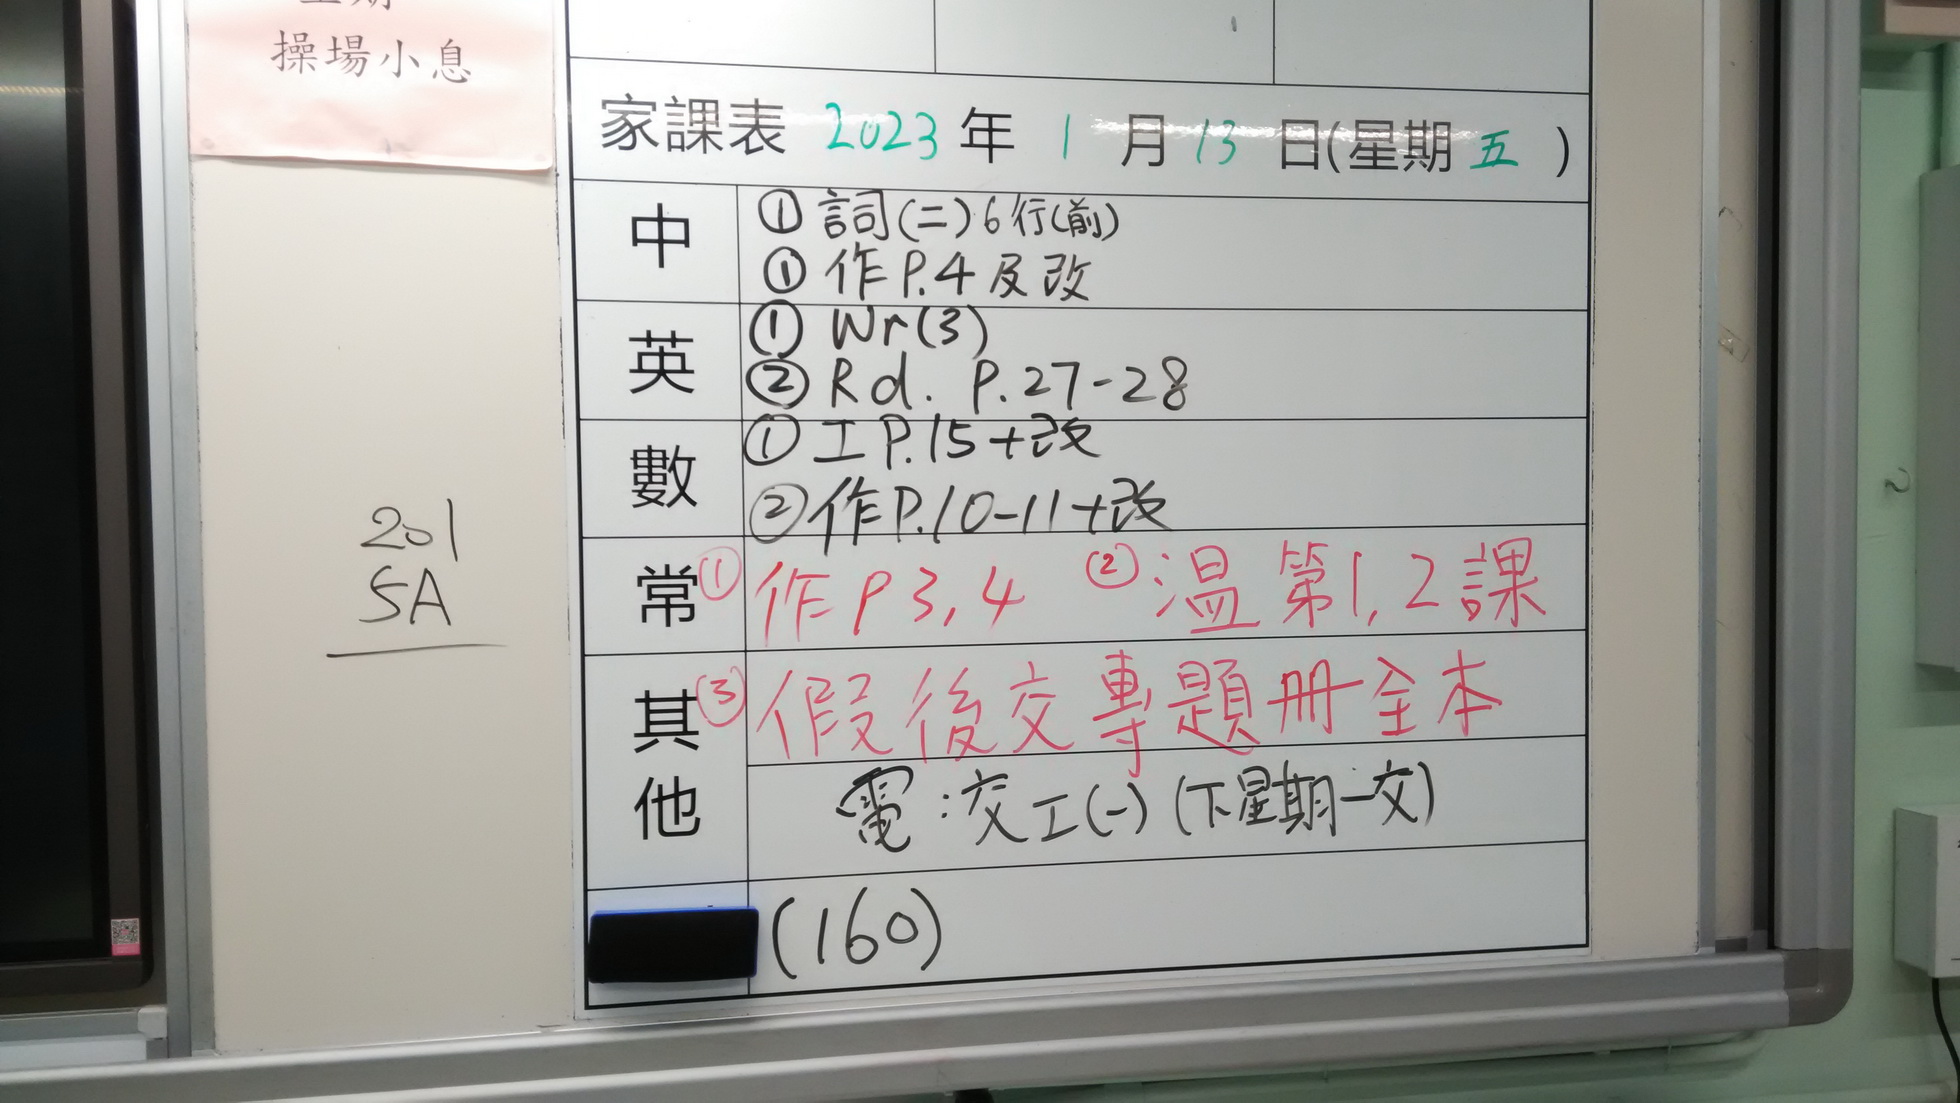 操場小息
家課表 2023 年 1 月 13 日(星期 五 )
中 ① 詞(二)6行(前)
① 作P.4及改
英 ① Wr(3)
② Rd. P.27-28
數 ① 工P.15+改
② 作P.10-11+改
常 ① 作P3,4 ② 温第1,2課
其他 ③ 假後交專題冊全本
電:交工(一)(下星期一交)
(160)
201
5A